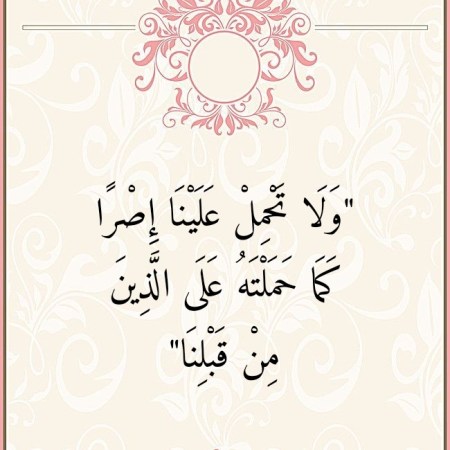 "وَلَا تَحْمِلْ عَلَيْنَا إِصْرًا
كَمَا حَمَلْتَهُ عَلَى الَّذِينَ
مِنْ قَبْلِنَا"